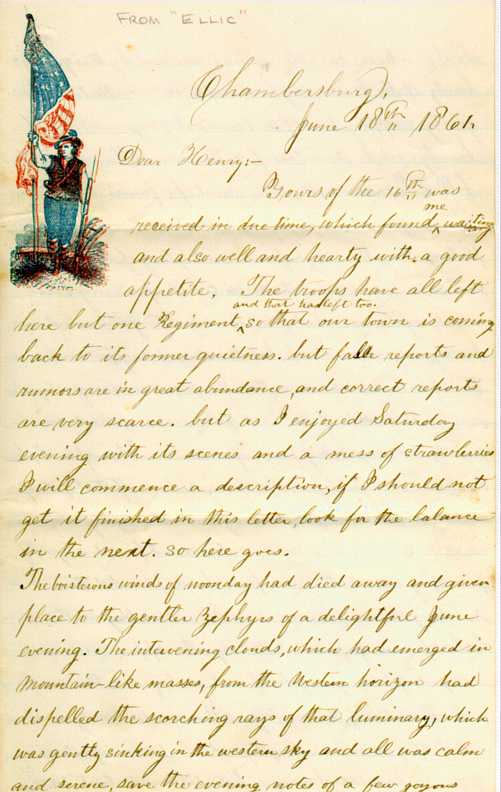 FROM "ELLIC"
Chambersburg,
June 18th 1861.
Dear Henry:-
Yours of the 16th was
received in due time, which found me waiting
and also well and hearty with a good
appetite. The troops have all left
here but one Regiment, and that has left too. so that our town is coming
back to its former quietness. but false reports and
rumors are in great abundance, and correct reports
are very scarce. but as I enjoyed Saturday
evening with its scenes and a mess of strawberries
I will commence a description, if I should not
get it finished in this letter, look for the balance
in the next. so here goes.
The boisterous winds of noonday had died away and given
place to the gentler zephyrs of a delightful June
evening. The intervening clouds, which had emerged in
mountain-like masses, from the Western horizon had
dispelled the scorching rays of that luminary, which
was gently sinking in the western sky and all was calm
and serene, save the evening notes of a few goyous